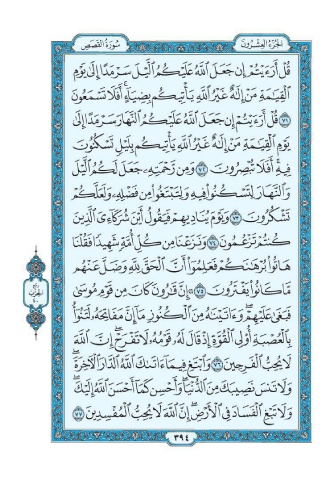 سُورَةُ القَصَصِ
الجُزْءُ العِشْرُونَ
قُلْ أَرَءَيْتُمْ إِن جَعَلَ ٱللَّهُ عَلَيْكُمُ ٱلَّيْلَ سَرْمَدًا إِلَىٰ يَوْمِ
ٱلْقِيَٰمَةِ مَنْ إِلَٰهٌ غَيْرُ ٱللَّهِ يَأْتِيكُم بِضِيَآءٍ أَفَلَا تَسْمَعُونَ
٧١ قُلْ أَرَءَيْتُمْ إِن جَعَلَ ٱللَّهُ عَلَيْكُمُ ٱلنَّهَارَ سَرْمَدًا إِلَىٰ
يَوْمِ ٱلْقِيَٰمَةِ مَنْ إِلَٰهٌ غَيْرُ ٱللَّهِ يَأْتِيكُم بِلَيْلٍ تَسْكُنُونَ
فِيهِ أَفَلَا تُبْصِرُونَ ٧٢ وَمِن رَّحْمَتِهِۦ جَعَلَ لَكُمُ ٱلَّيْلَ
وَٱلنَّهَارَ لِتَسْكُنُوا۟ فِيهِ وَلِتَبْتَغُوا۟ مِن فَضْلِهِۦ وَلَعَلَّكُمْ
تَشْكُرُونَ ٧٣ وَيَوْمَ يُنَادِيهِمْ فَيَقُولُ أَيْنَ شُرَكَآءِىَ ٱلَّذِينَ
كُنتُمْ تَزْعُمُونَ ٧٤ وَنَزَعْنَا مِن كُلِّ أُمَّةٍ شَهِيدًا فَقُلْنَا
هَاتُوا۟ بُرْهَٰنَكُمْ فَعَلِمُوٓا۟ أَنَّ ٱلْحَقَّ لِلَّهِ وَضَلَّ عَنْهُم
مَّا كَانُوا۟ يَفْتَرُونَ ٧٥ إِنَّ قَٰرُونَ كَانَ مِن قَوْمِ مُوسَىٰ
فَبَغَىٰ عَلَيْهِمْ وَءَاتَيْنَٰهُ مِنَ ٱلْكُنُوزِ مَآ إِنَّ مَفَاتِحَهُۥ لَتَنُوٓأُ
بِٱلْعُصْبَةِ أُو۟لِى ٱلْقُوَّةِ إِذْ قَالَ لَهُۥ قَوْمُهُۥ لَا تَفْرَحْ إِنَّ ٱللَّهَ
لَا يُحِبُّ ٱلْفَرِحِينَ ٧٦ وَٱبْتَغِ فِيمَآ ءَاتَىٰكَ ٱللَّهُ ٱلدَّارَ ٱلْءَاخِرَةَ
وَلَا تَنسَ نَصِيبَكَ مِنَ ٱلدُّنْيَا وَأَحْسِن كَمَآ أَحْسَنَ ٱللَّهُ إِلَيْكَ
وَلَا تَبْغِ ٱلْفَسَادَ فِى ٱلْأَرْضِ إِنَّ ٱللَّهَ لَا يُحِبُّ ٱلْمُفْسِدِينَ ٧٧
٣٩٤